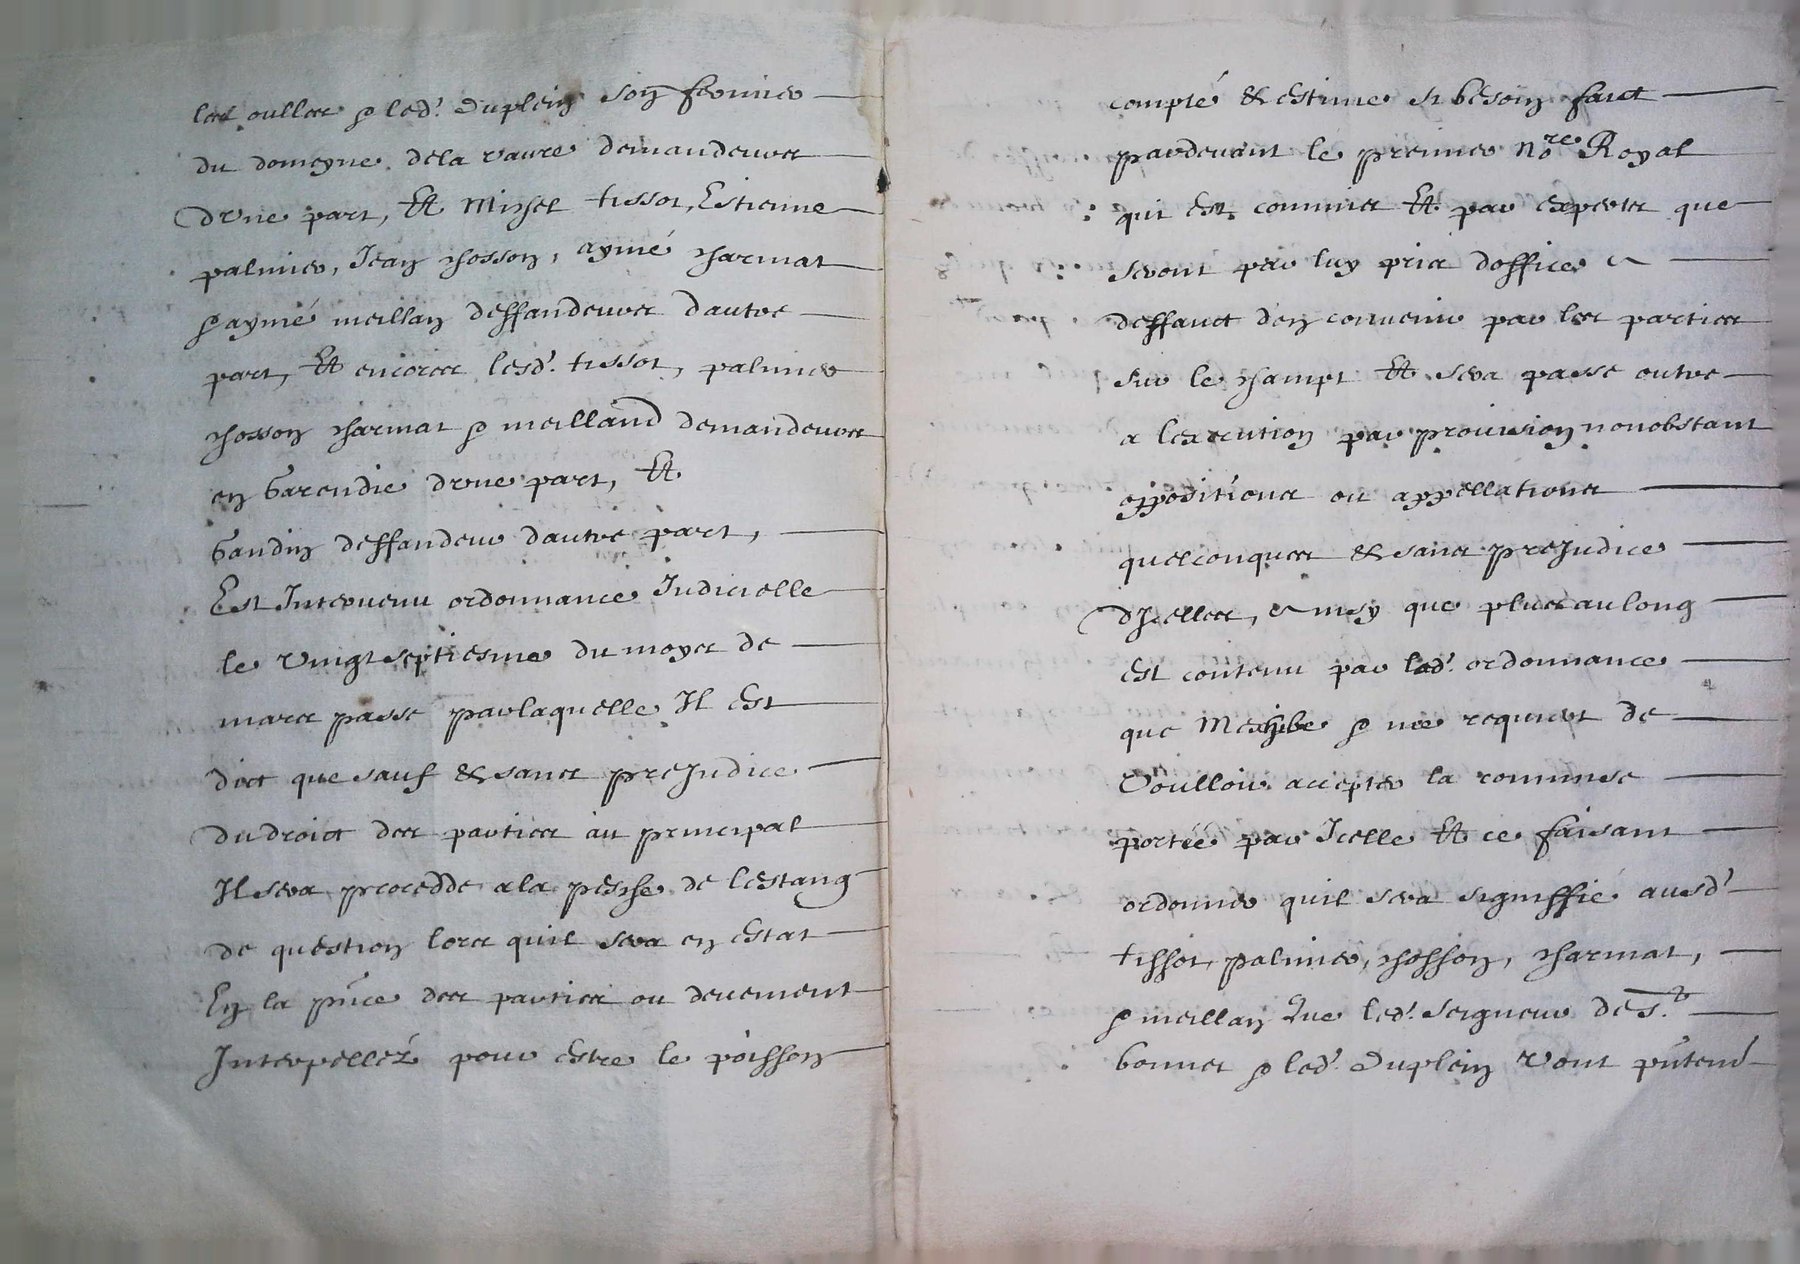 les oulles & led.t Duplein son fermier
du domeyne de la vaure demandeurs
dune part, Et Michel tissot, Estienne
palmier, Jean chosson, aymé charmat
& aymé meillan deffandeurs dautre
part, Et encores lesd.t tissot, palmier
chosson charmat & meilland demandeurs
en Garendie dune part, Et
Gaudin deffandeur dautre part,
Est Intervenu ordonnance Judicielle
le vingt septiesme du moys de
mars passe par laquelle Il est
dict que sauf & sans preJudice
du droict des parties au principal
Il sera procedde a la pesche de lestang
de question lors quil sera en estat
En la pn̄ce des parties ou deuement
Interpellez pour estre le poisson
compté & estime si besoin faict
pardevant le premier no.re Royal
qui est commis Et par expertz que
seront par luy pris doffice a
deffauct den convenir par les parties
sur le champt Et sera passe outre
a lexecution par provision nonobstant
oppositions ou appellations
quelconques & sans preJudice
dIcelles, ainsy que plus au long
est contenu par lad.t ordonnance
que & me requiert de
Voulloir accepter la commise
portée par Icelle Et ce faisant
ordonner quil sera signiffié ausd.t
tissot, palmier, chosson, charmat,
& meillan Que led.t Seigneur de S.t
bonnet & led.t Duplein vont pn̄tend